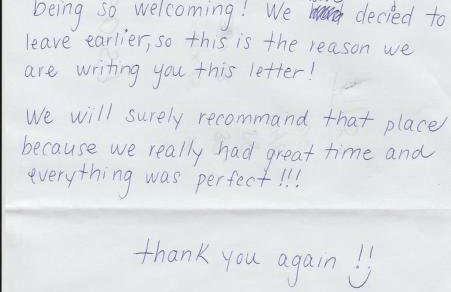 being so welcoming! We decied to
leave earlier, so this is the reason we
are writing you this letter!
We will surely recommand that place
because we really had great time and
everything was perfect!!!
thank you again!!